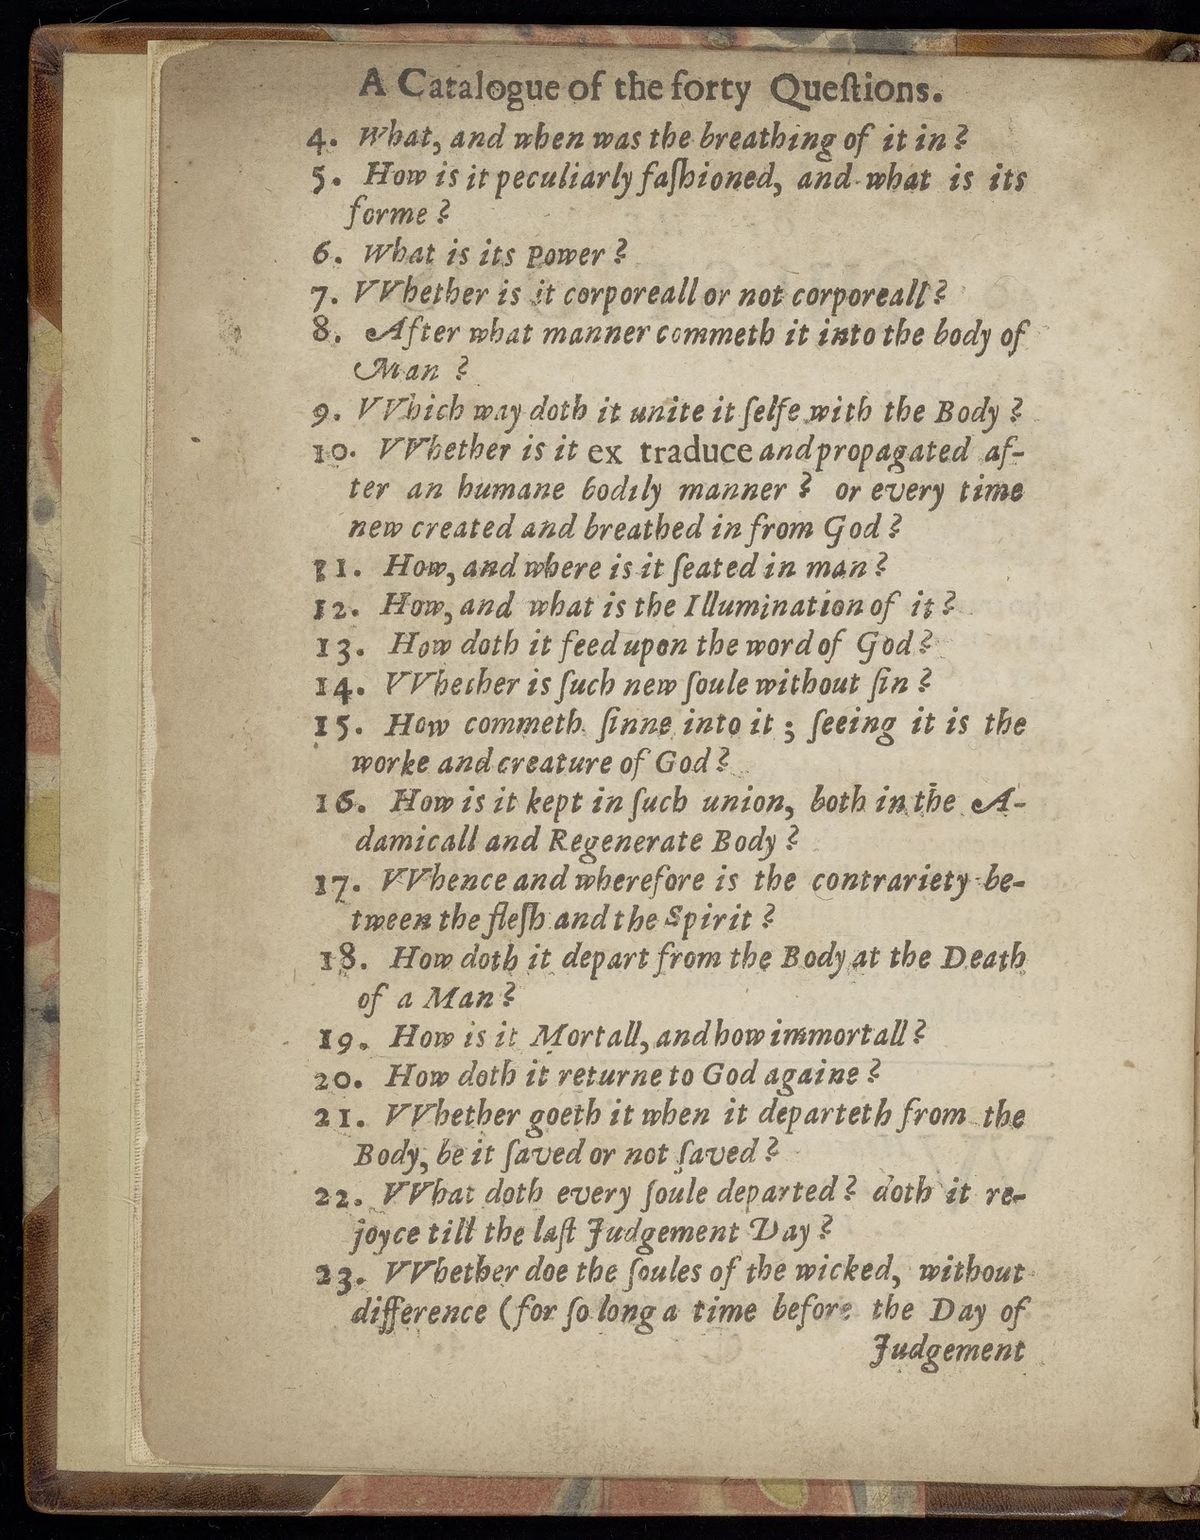 A Catalogue of the forty Queſtions.
4. What, and when was the breathing of it in?
5. How is it peculiarly faſhioned, and what is its
forme?
6. What is its Power?
7. VVhether is it corporeall or not corporeall?
8. After what manner commeth it into the body of
Man?
9. VVhich way doth it unite it ſelfe with the Body?
10. VVhether is it ex traduce and propagated af-
ter an humane bodily manner? or every time
new created and breathed in from God?
11. How, and where is it ſeated in man?
12. How, and what is the Illumination of it?
13. How doth it feed upon the word of God?
14. VVhether is ſuch new ſoule without ſin?
15. How commeth ſinne into it; ſeeing it is the
worke and creature of God?
16. How is it kept in ſuch union, both in the A-
damicall and Regenerate Body?
17. VVhence and wherefore is the contrariety be-
tween the fleſh and the Spirit?
18. How doth it depart from the Body at the Death
of a Man?
19. How is it Mortall, and how immortall?
20. How doth it returne to God againe?
21. VVhether goeth it when it departeth from the
Body, be it ſaved or not ſaved?
22. VVhat doth every ſoule departed? doth it re-
joyce till the laſt Judgement Day?
23. VVhether doe the ſoules of the wicked, without
difference (for ſo long a time before the Day of
Judgement